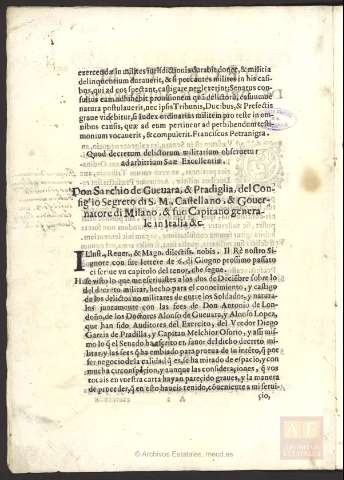 exercendæ in milites iurisdictionis durabit donec, & militia
delinquentium durauerit, & si postea tales milites in his ca-
sibus, qui ad eos spectant, castigare neglexerint; Senatus con-
sultius eam adhibebit prouisionem quã delictorũ, et suum
natura postulauerit, nec ipsis Tribunis, Ducibus, & Præfectis
graue videbitur, si Iudex ordinarius militem pro teste in om-
nibus causis, quæ ad eum pertinent ad perhibendum testi-
monium vocauerit, & compulerit. Franciscus Petranigra.
Quod decretum delictorum militarium obseruetur
ad arbitrium Suæ Excellentiæ.
Don Sanchio de Gueuara, & Pradiglia, del Con-
siglio Segreto di S. M., Castellano, & Gouer-
natore di Milano, & suo Capitano genera-
le in Italia &c.
Illust. Reuer. & Magn. dilectiss. nobis. Il Rè nostro Si-
gnore con sue lettere de 6. di Giugno prossimo passato
ci scriue vn capitolo del tenor, che segue.
Hase visto lo que me escriuistes a los dos de Deciẽbre sobre lo
del decreto militar, hecho para el conocimiento, y castigo
de los delictos no militares de entre los Soldados, y natura-
les juntamente con las fees de Don Antonio de Lon-
doño, de los Doctores Alonso de Gueuara, y Alonso Lopez,
que han sido Auditores del Exercito, del Veedor Diego
Garcia de Pradilla, y Capitan Melchior Osorio, y assi mis-
mo lo q̃ el Senado ha escrito en fauor del dicho decreto mi-
litar, y las fees q̃ ha embiado para prueua de su intẽto, q̃ por
ser negocio de la calidad q̃ es, se ha mirado de espacio, y con
mucha circunspecion, y aunque las consideraciones, q̃ vos
tocais en vuestra carta hayan parecido graues, y la manera
de proceder, q̃ en esto haueis tenido, cõueniente a mi serui-
cio,
A 2
© Archivos Estatales, mecd.es
ARCHIVOS
ESTATALES